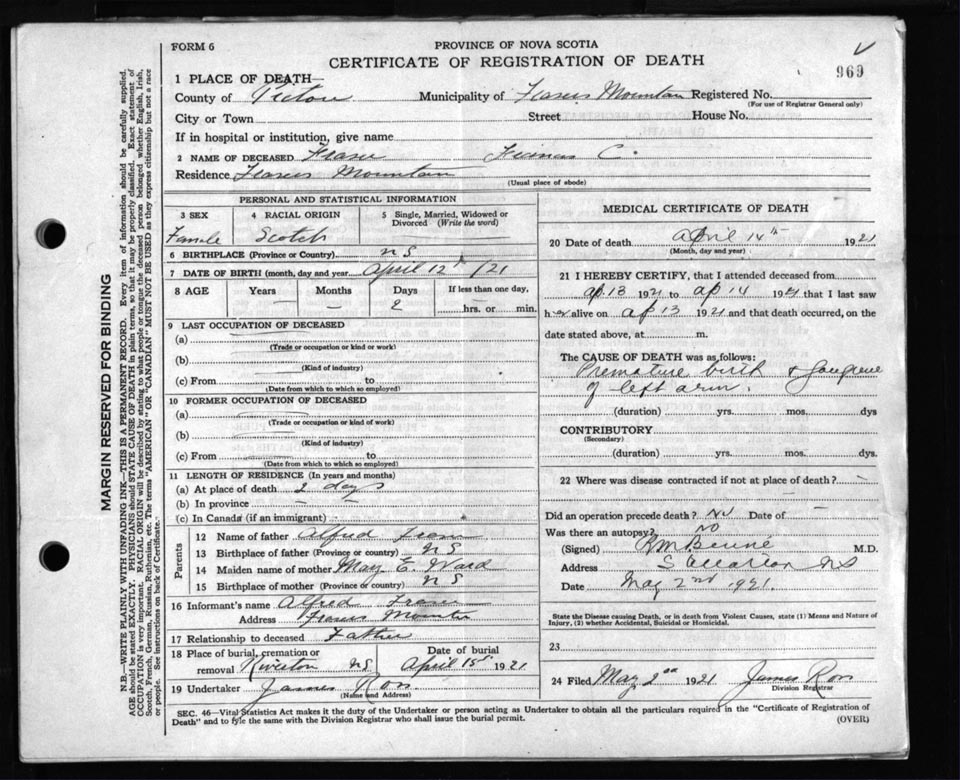 FORM 6
PROVINCE OF NOVA SCOTIA
CERTIFICATE OF REGISTRATION OF DEATH
969
1 PLACE OF DEATH—
County of Pictou Municipality of Frasers Mountain Registered No.
(For use of Registrar General only)
City or Town Street House No.
If in hospital or institution, give name
2 NAME OF DECEASED Fraser C.
Residence Frasers Mountain
(Usual place of abode)
PERSONAL AND STATISTICAL INFORMATION
3 SEX 4 RACIAL ORIGIN 5 Single, Married, Widowed or Divorced (Write the word)
Female Scotch
6 BIRTHPLACE (Province or Country) NS
7 DATE OF BIRTH (month, day and year) April 12th /21
8 AGE Years Months Days If less than one day,
— — 2 hrs. or min.
9 LAST OCCUPATION OF DECEASED
(a)
(Trade or occupation or kind or work)
(b)
(Kind of industry)
(c) From to
(Date from which to which so employed)
10 FORMER OCCUPATION OF DECEASED
(a)
(Trade or occupation or kind of work)
(b)
(Kind of industry)
(c) From to
(Date from which to which so employed)
11 LENGTH OF RESIDENCE (In years and months)
(a) At place of death 2 days
(b) In province — —
(c) In Canada (if an immigrant) —
Parents
12 Name of father Alfred Fraser
13 Birthplace of father (Province or country) NS
14 Maiden name of mother May E. Ward
15 Birthplace of mother (Province or country) NS
16 Informant's name Alfred Fraser
Address Frasers Mountn
17 Relationship to deceased Father
18 Place of burial, cremation or removal Riverton NS
Date of burial
April 15st 1921
19 Undertaker James Ross
(Name and Address)
MEDICAL CERTIFICATE OF DEATH
20 Date of death April 14th 1921
(Month, day and year)
21 I HEREBY CERTIFY, that I attended deceased from
ap 13 1921 to ap 14 1921 that I last saw
her alive on ap 13 1921 and that death occurred, on the
date stated above, at m.
The CAUSE OF DEATH was as follows:
Premature birth & Gangrene
of left arm.
(duration) yrs. mos. dys
CONTRIBUTORY
(Secondary)
(duration) yrs. mos. dys.
22 Where was disease contracted if not at place of death? —
Did an operation precede death? No Date of —
Was there an autopsy? No
(Signed) M.D.
Address Stellarton NS
Date May 2nd 1921.
State the Disease causing Death, or in death from Violent Causes, state (1) Means and Nature of
Injury, (2) whether Accidental, Suicidal or Homicidal.
23
24 Filed May 2nd 1921 James Ross
Division Registrar
SEC. 46—Vital Statistics Act makes it the duty of the Undertaker or person acting as Undertaker to obtain all the particulars required in the "Certificate of Registration of
Death" and to file the same with the Division Registrar who shall issue the burial permit.
(OVER)
MARGIN RESERVED FOR BINDING
N.B.—WRITE PLAINLY WITH UNFADING INK—THIS IS A PERMANENT RECORD. Every item of information should be carefully supplied.
AGE should be stated EXACTLY. PHYSICIANS should STATE CAUSE OF DEATH in plain terms, so that it may be properly classified. Exact statement of
OCCUPATION is very important. RACIAL ORIGIN will be described by stating to what people or tongue the deceased person belonged whether English, Irish,
Scotch, French, German, Russian, Ruthenian, etc. The terms "AMERICAN" OR "CANADIAN" MUST NOT BE USED as they express citizenship but not a race
or people. See instructions on back of Certificate.